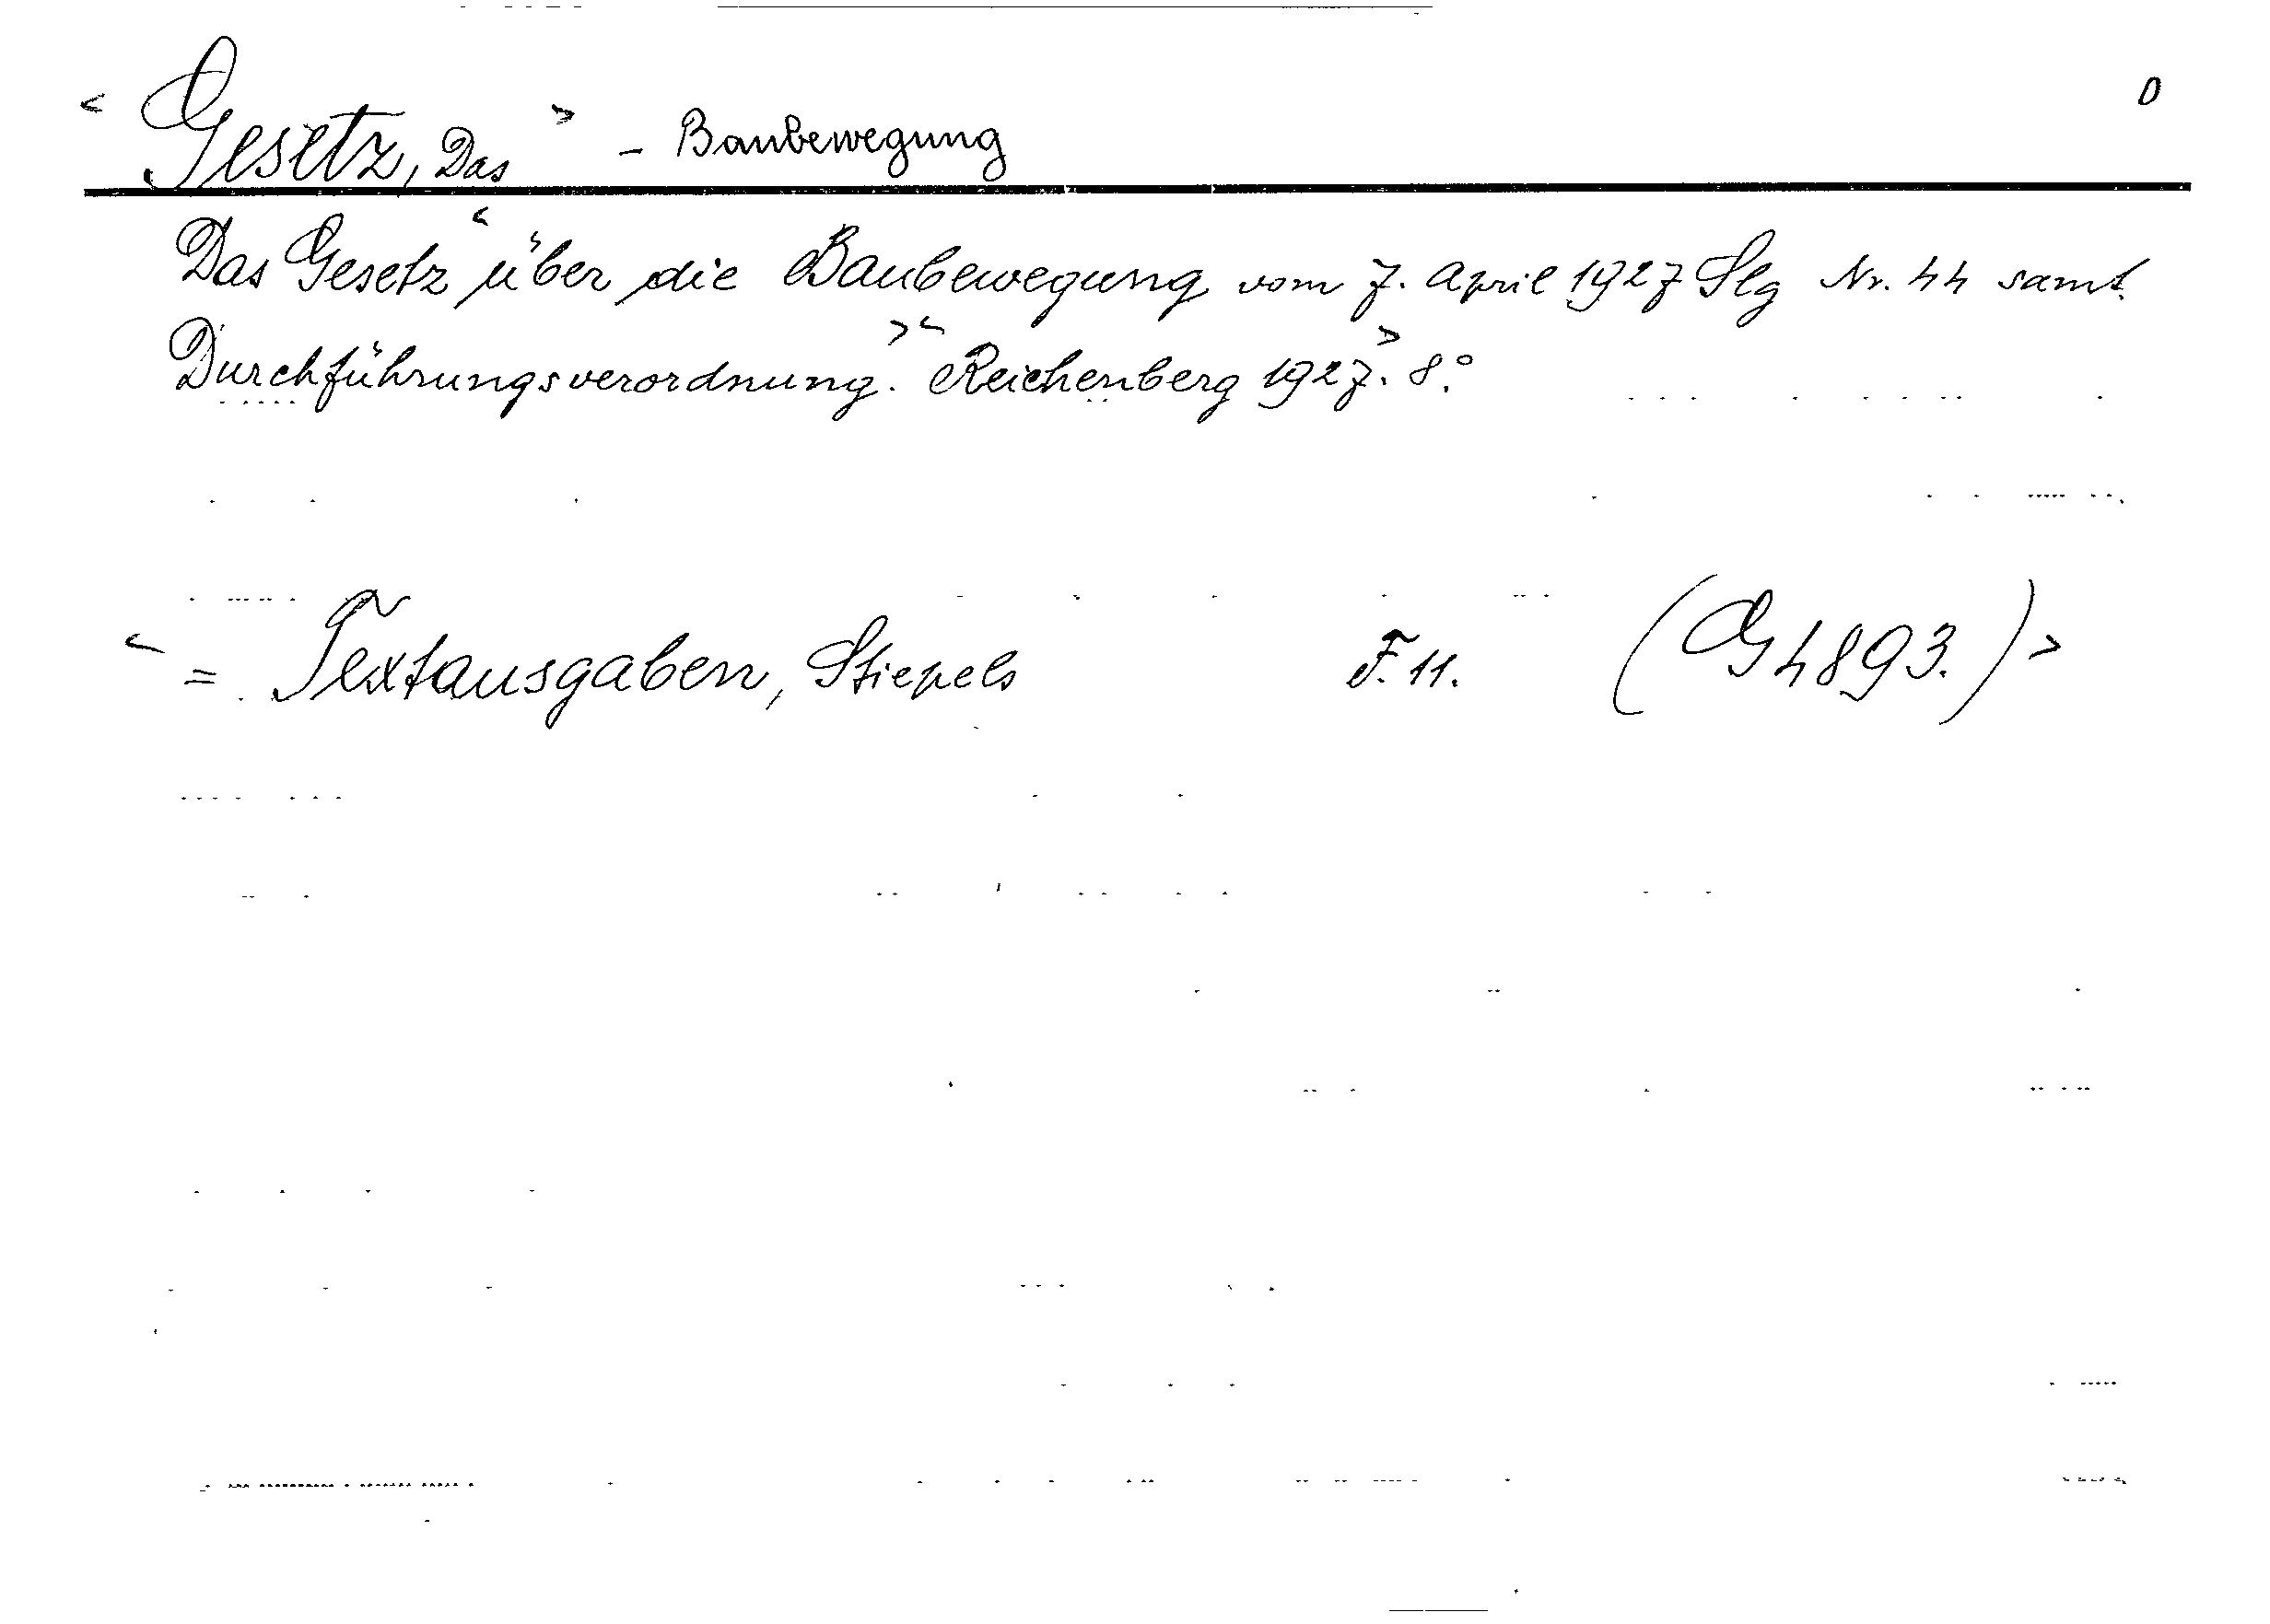 < Gesetz, Das > - Baubewegung 0
Das Gesetz < über die Baubewegung vom 7. April 1927 Slg Nr. 44 samt
Durchführungsverordnung. >< Reichenberg 1927. > 8.°
< = Textausgaben, Stiepels F. 11. (G 4893.) >